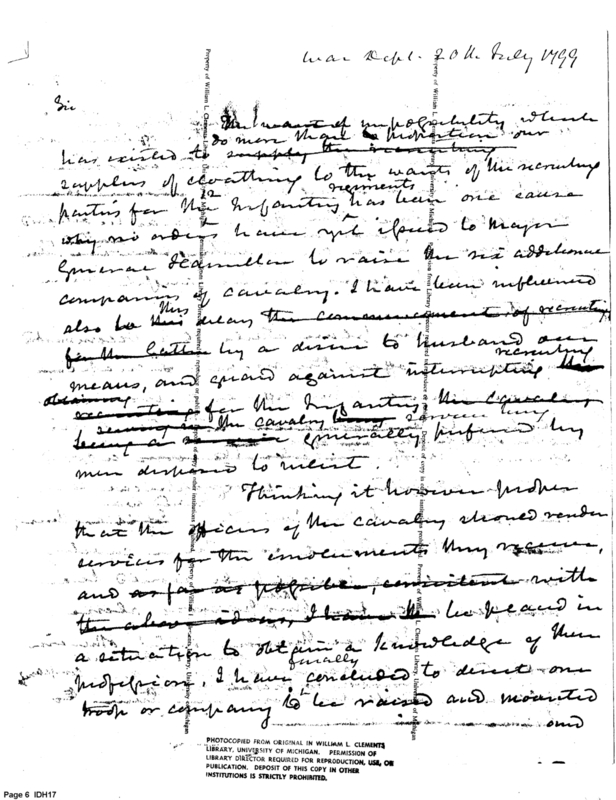 War Dept. 20th July 1799
Sir
The want of impossibility which
do more than proportion our
has existed to supply the recruiting
supplies of cloathing to the wants of the recruiting
regiments
parties for the 12 Infantry has been one cause
why no orders have yet issued to Major
General Hamilton to raise the six additional
companies of cavalry. I have been influenced
this
also to this delay the commencement of recruiting
for the latter by a desire to husband our
recruiting
means, and guard against interrupting the
recruiting for the Infantry, the Cavalry
the cavalry service being
being a service generally prefered by
men disposed to inlist.
Thinking it however proper
that the officers of the cavalry should render
services for the emoluments they receive,
and as far as possible, consistent with
the above ideas, I have be placed in
a situation to obtain a knowledge of their
finally
profession, I have concluded to direct one
troop or company to be raised and mounted
and
PHOTOCOPIED FROM ORIGINAL IN WILLIAM L. CLEMENTS
LIBRARY, UNIVERSITY OF MICHIGAN. PERMISSION OF
LIBRARY DIRECTOR REQUIRED FOR REPRODUCTION, USE, OR
PUBLICATION. DEPOSIT OF THIS COPY IN OTHER
INSTITUTIONS IS STRICTLY PROHIBITED.
Page 6 IDH17